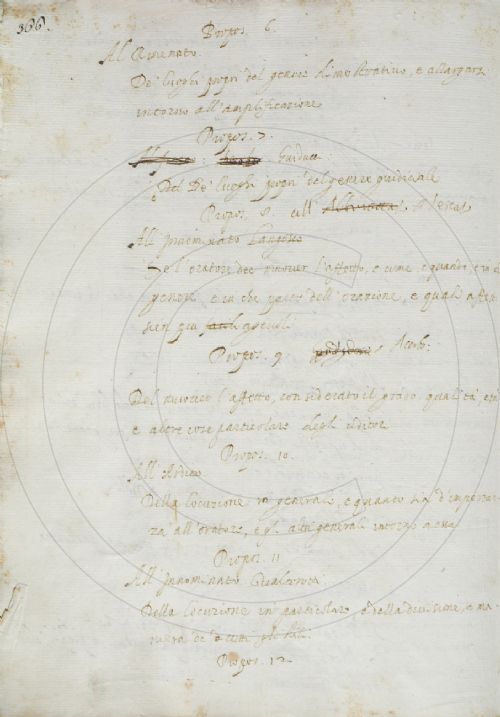 366.
Propos. 6.
Al
De' luoghi propri del genere dimostrativo, e allargarsi
intorno all'amplificazione
Propos. 7.
Guiducc.
Del De' luoghi propri del genere giudiciale
Propos. 8. all'
All' innominato
Se l'oratore dee muover l'affetto, e come, e quando, e in che
genere e in che parte dell'orazione, e quali affetti
sien più facili
Propos. 9.
Del muover l'affetto, considerato il grado, qualità, età
e altre cose particolare degli uditori
Propos. 10.
All'
Della locuzione in generale, e quanto sia d'importan
za all'oratore, e gl' altri generali intorno a essa
Propos. 11
All' innominato
Della locuzione in particolare, e della divisione, e ma
niera de
Propos. 12